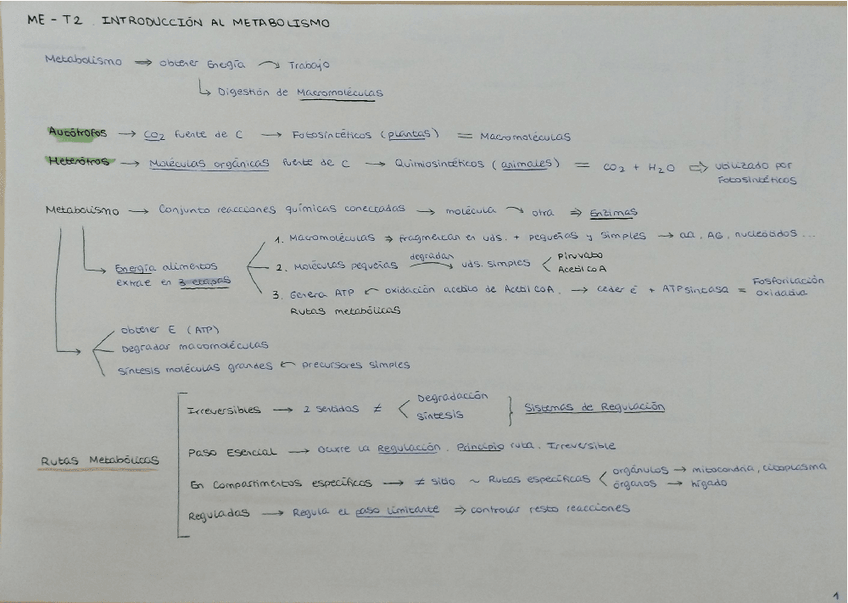 ME - T2. INTRODUCCIÓN AL METABOLISMO
Metabolismo ⇒ obtener Energía → Trabajo
↳ Digestión de Macromoléculas
Autótrofos → CO2 fuente de C → Fotosintéticos (plantas) = Macromoléculas
Heterótros → Moléculas orgánicas fuente de C → Quimiosintéticos (animales) = CO2 + H2O ⇒ utilizado por
Fotosintéticos
Metabolismo → Conjunto reacciones químicas conectadas → molécula → otra ⇒ Enzimas
1. Macromoléculas ⇒ fragmentan en uds. + pequeñas y simples → aa, AG, nucleótidos ...
Energía alimentos
extrae en 3 etapas
2. Moléculas pequeñas degradan → uds. simples < Piruvato
Acetil coA
3. Genera ATP ← oxidación acetilo de Acetil CoA. → ceder é + ATPsintasa = Fosforilación
oxidativa
Rutas metabólicas
obtener E (ATP)
Degradar macomoléculas
Síntesis moléculas grandes ← precursores simples
Rutas Metabólicas
Irreversibles → 2 sentidos ≠ < Degradación
Síntesis } Sistemas de Regulación
Paso Esencial → Ocurre la Regulación. Principio ruta. Irreversible
En Compartimentos específicos → ≠ sitio ~ Rutas específicas < orgánulos → mitocondria, citoplasma
órganos → hígado
Reguladas → Regula el paso limitante ⇒ controlar resto reacciones
1